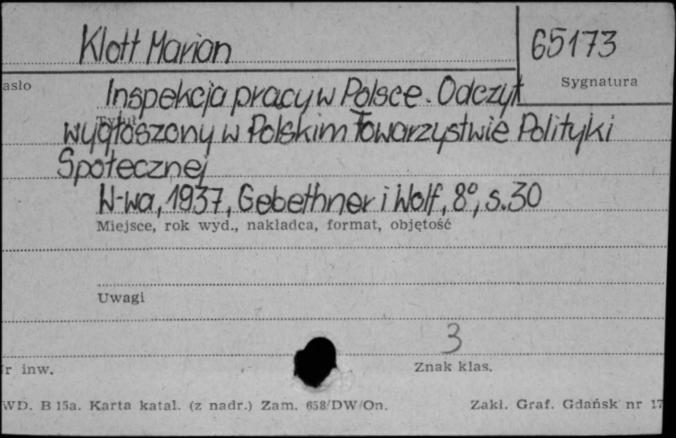 Klott Marian 65173
asło Sygnatura
Inspekcja pracy w Polsce. Odczyt
Tytuł
wygłoszony w Polskim Towarzystwie Polityki
Społecznej
W-wa, 1937, Gebethner i Wolf, 8°, s. 30
Miejsce, rok wyd., nakładca, format, objętość
Uwagi
3
r inw. Znak klas.
WD. B 15a. Karta katal. (z nadr.) Zam. 658/DW/On. Zakł. Graf. Gdańsk nr 17